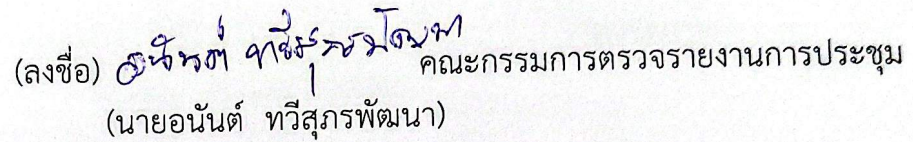 (ลงชื่อ) อนันต์ ทวีสุภรพัฒนา คณะกรรมการตรวจรายงานการประชุม
(นายอนันต์ ทวีสุภรพัฒนา)